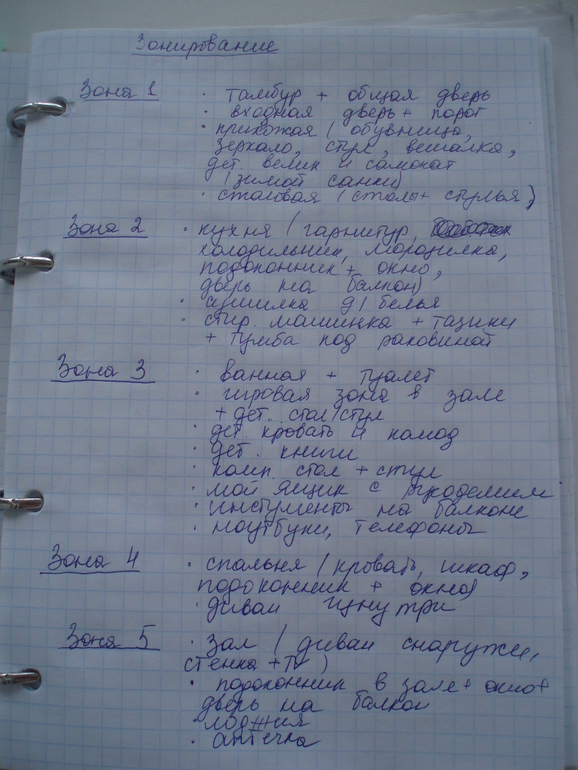 Зонирование
Зона 1 · тамбур + общая дверь
· входная дверь + порог
· прихожая (обувница,
зеркало, стул, вешалка,
дет. велик и самокат
(зимой санки)
· столовая (столы + стулья)
Зона 2 · кухня (гарнитур,
холодильник, морозилка,
подоконник + окно,
дверь на балкон)
· сушилка д/белья
· стир. машинка + тазики
+ тумба под раковиной
Зона 3 · ванная + туалет
· игровая зона в зале
+ дет. стол/стул
· дет. кровать и комод
· дет. книги
· комп. стол + стул
· мой ящик с рукоделием
· инструменты на балконе
· ноутбуки, телефоны
Зона 4 · спальня (кровать, шкаф,
подоконник + окно)
· диван внутри
Зона 5 · зал (диван снаружи,
стенка + TV)
· подоконник в зале + окно +
дверь на балкон
· лоджия
· аптечка